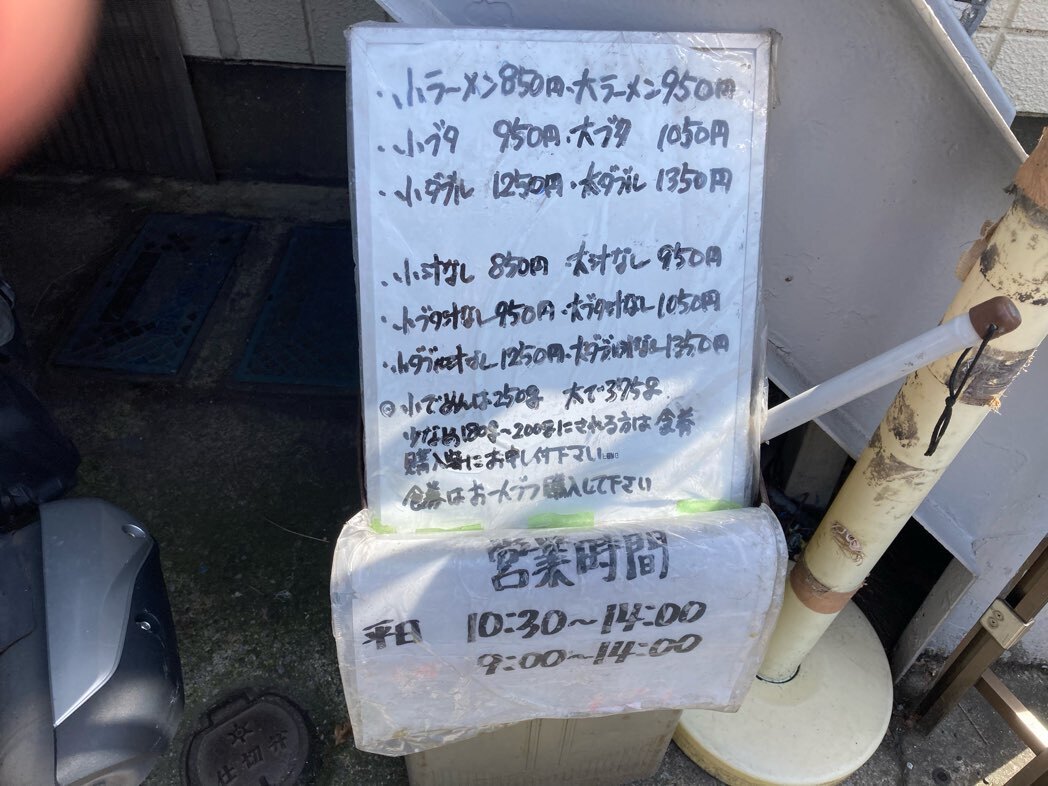 ・小ラーメン850円・大ラーメン950円
・小ブタ 950円・大ブタ 1050円
・小ダブル 1250円・大ダブル 1350円
・小汁なし 850円 大汁なし 950円
・小ブタ汁なし950円・大ブタ汁なし1050円
・小ダブル汁なし1250円・大ダブル汁なし1350円
◎小でめんは250g 大で375g
少なめ180g〜200gにされる方は食券
購入時にお申し付下さい。
食券はお一人づつ購入して下さい
営業時間
平日 10:30〜14:00
9:00〜14:00
仕切弁